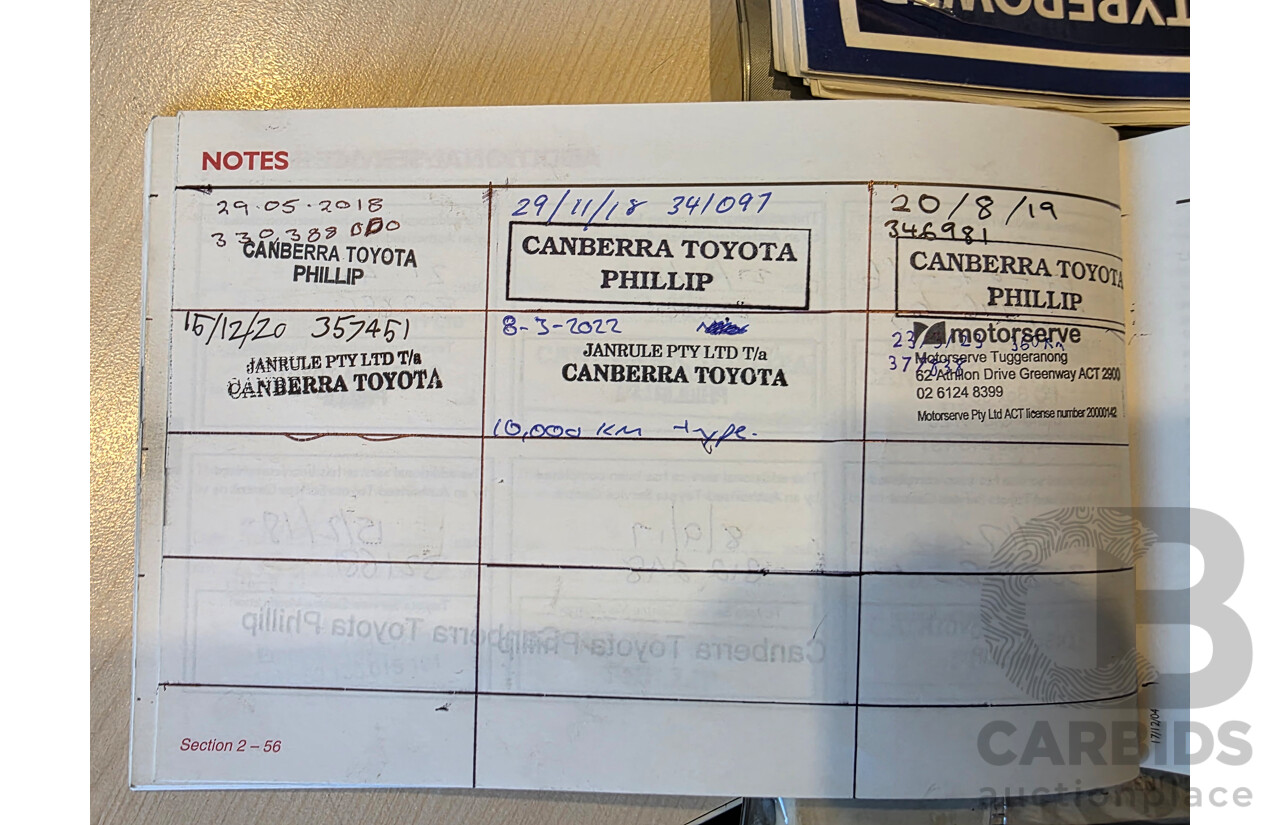 TYPEPOWER
NOTES
29.05.2018
330,388 000
CANBERRA TOYOTA
PHILLIP
29/11/18 341097
CANBERRA TOYOTA
PHILLIP
20/8/19
346981
CANBERRA TOYOTA
PHILLIP
15/12/20 357451
JANRULE PTY LTD T/a
CANBERRA TOYOTA
8-3-2022
JANRULE PTY LTD T/a
CANBERRA TOYOTA
10,000 KM type.
motorserve
Motorserve Tuggeranong
62 Athllon Drive Greenway ACT 2900
02 6124 8399
Motorserve Pty Ltd ACT license number 20000142
Canberra Toyota Phillip
Canberra Toyota Phillip
Section 2 – 56
17/12/04
CARBIDS
auctionplace